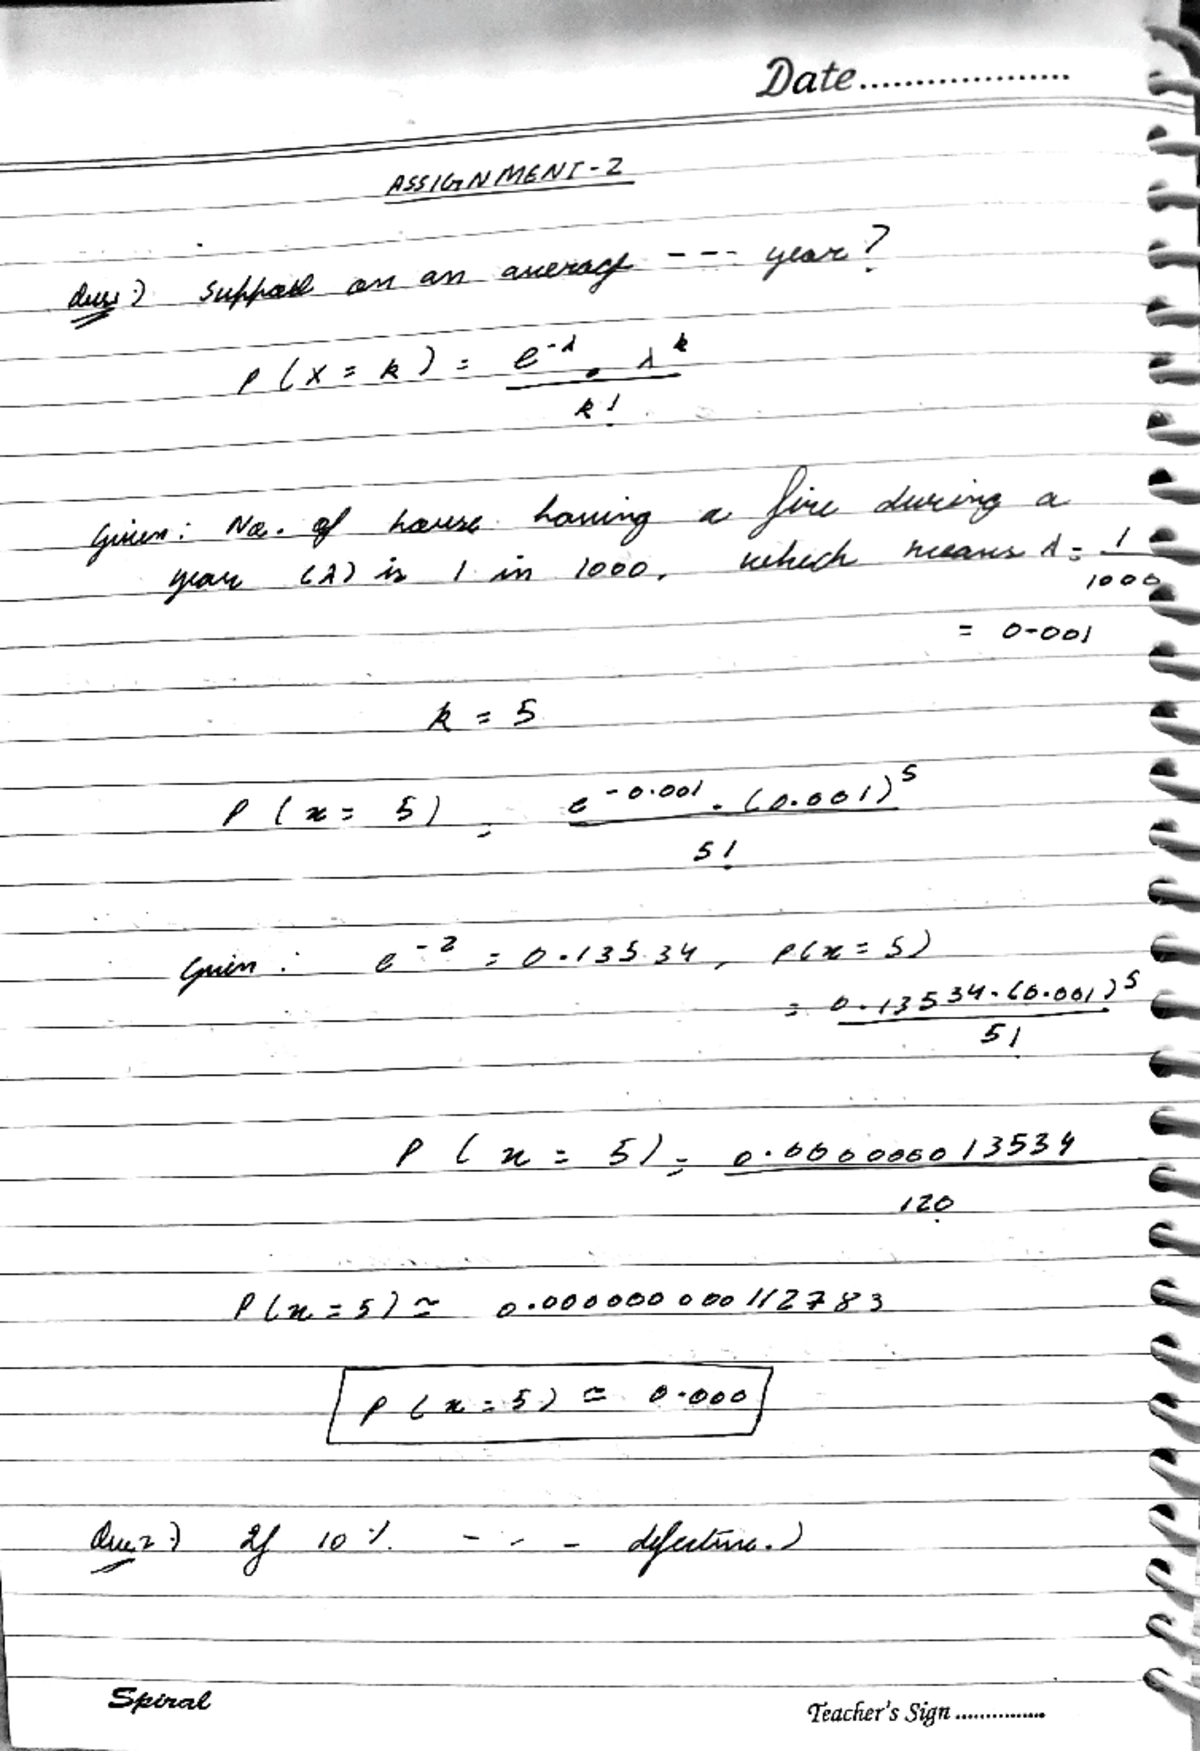 Date....................
ASSIGNMENT-2
Ques:) Suppose on an average --- year?
P(X = k) = e^-λ . λ^k
k!
Given: No. of house having a fire during a
year (λ) is 1 in 1000, which means λ = 1
1000
= 0.001
k = 5
P(x = 5) = e^-0.001 . (0.001)^5
5!
Given: e^-2 = 0.13534, P(x = 5)
= 0.13534.(0.001)^5
5!
P(x = 5) = 0.000000013534
120
P(x = 5) ≃ 0.000000000112783
P(x = 5) ≃ 0.000
Que2:) If 10% - - - defective.)
Spiral
Teacher's Sign...............